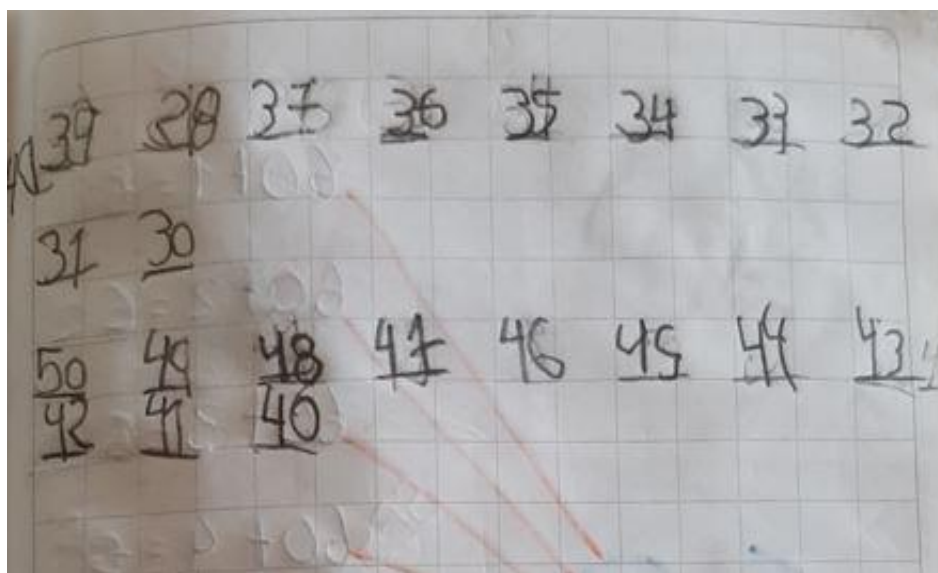 39 38 37 36 35 34 33 32
31 30
50 49 48 47 46 45 44 43
42 41 40